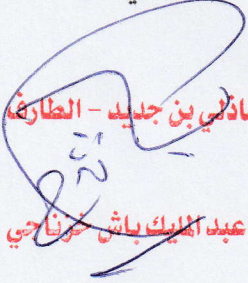 اذلي بن جديد - الطارف
عبد المليك باش خزناجي